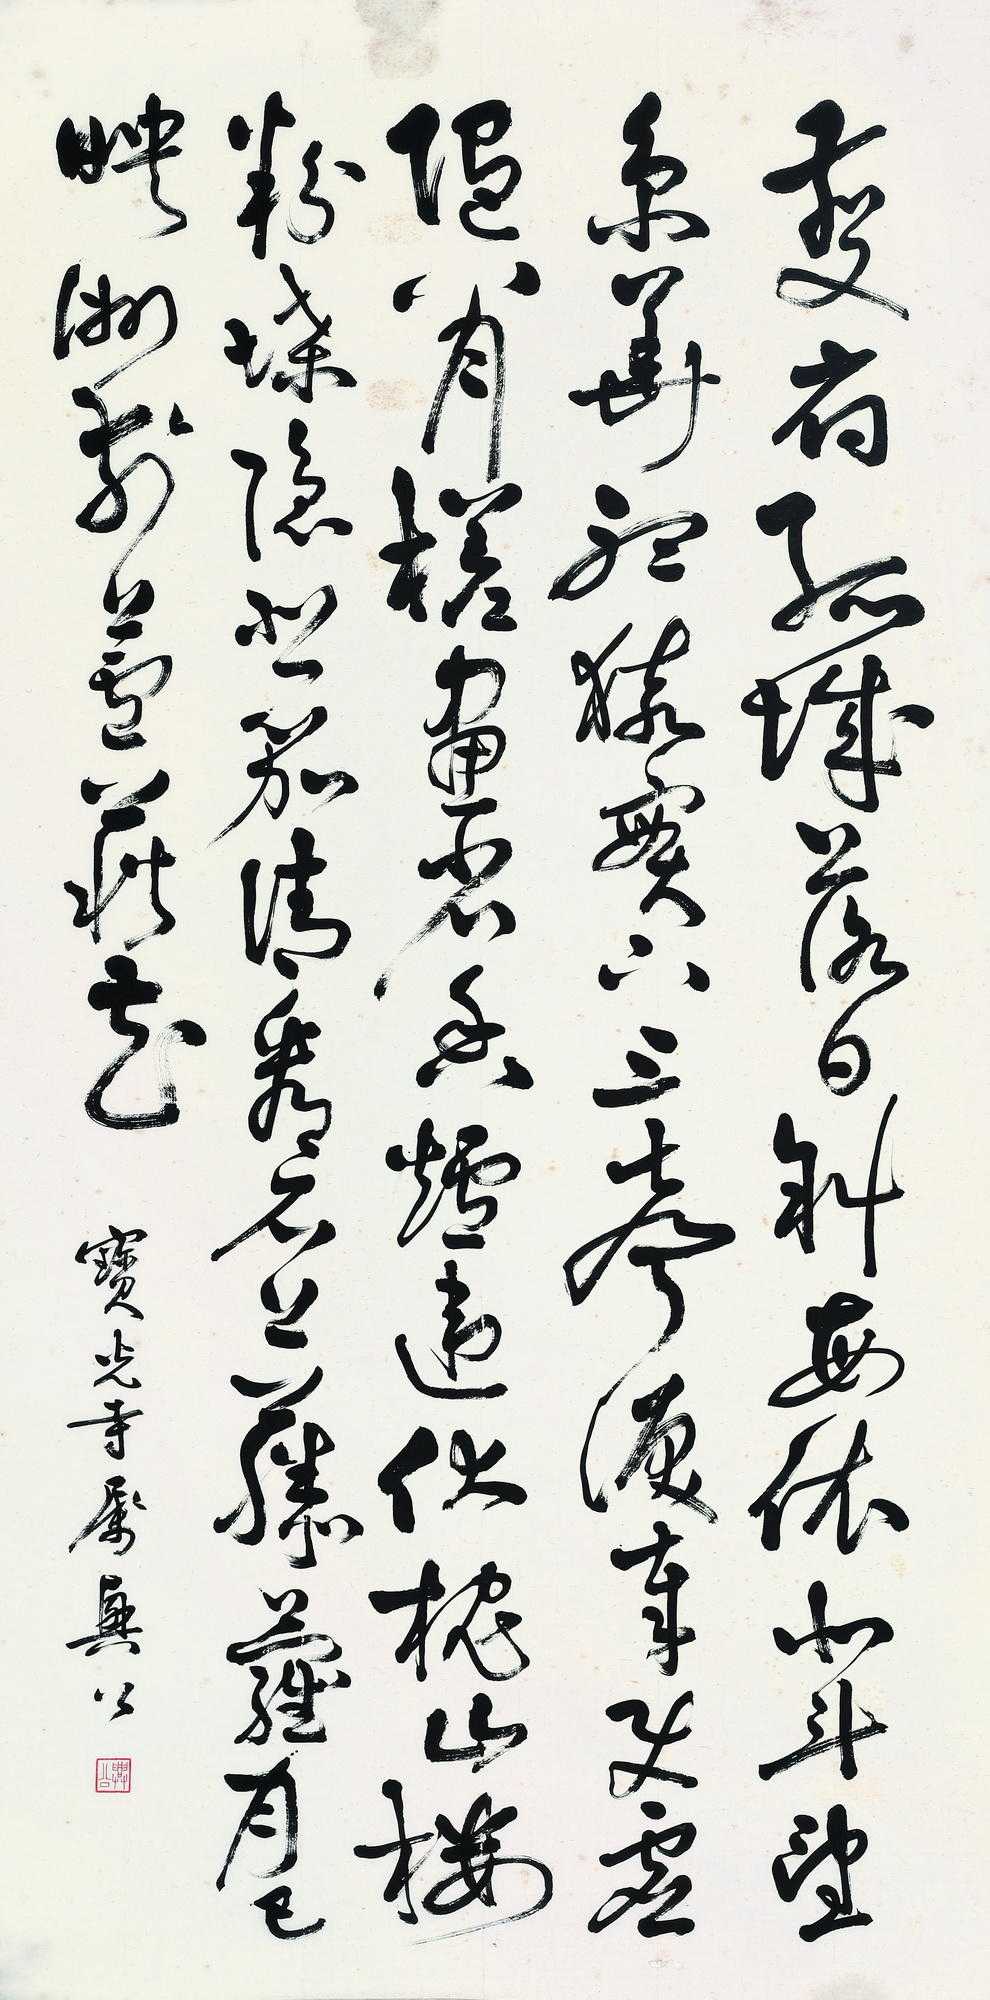 夔府孤城落日斜每依北斗望
京華聽猿實下三聲淚奉使虛
隨八月槎畫省香爐違伏枕山樓
粉堞隱悲笳請看石上藤蘿月已
映洲前蘆荻花
寶光寺屬 興公